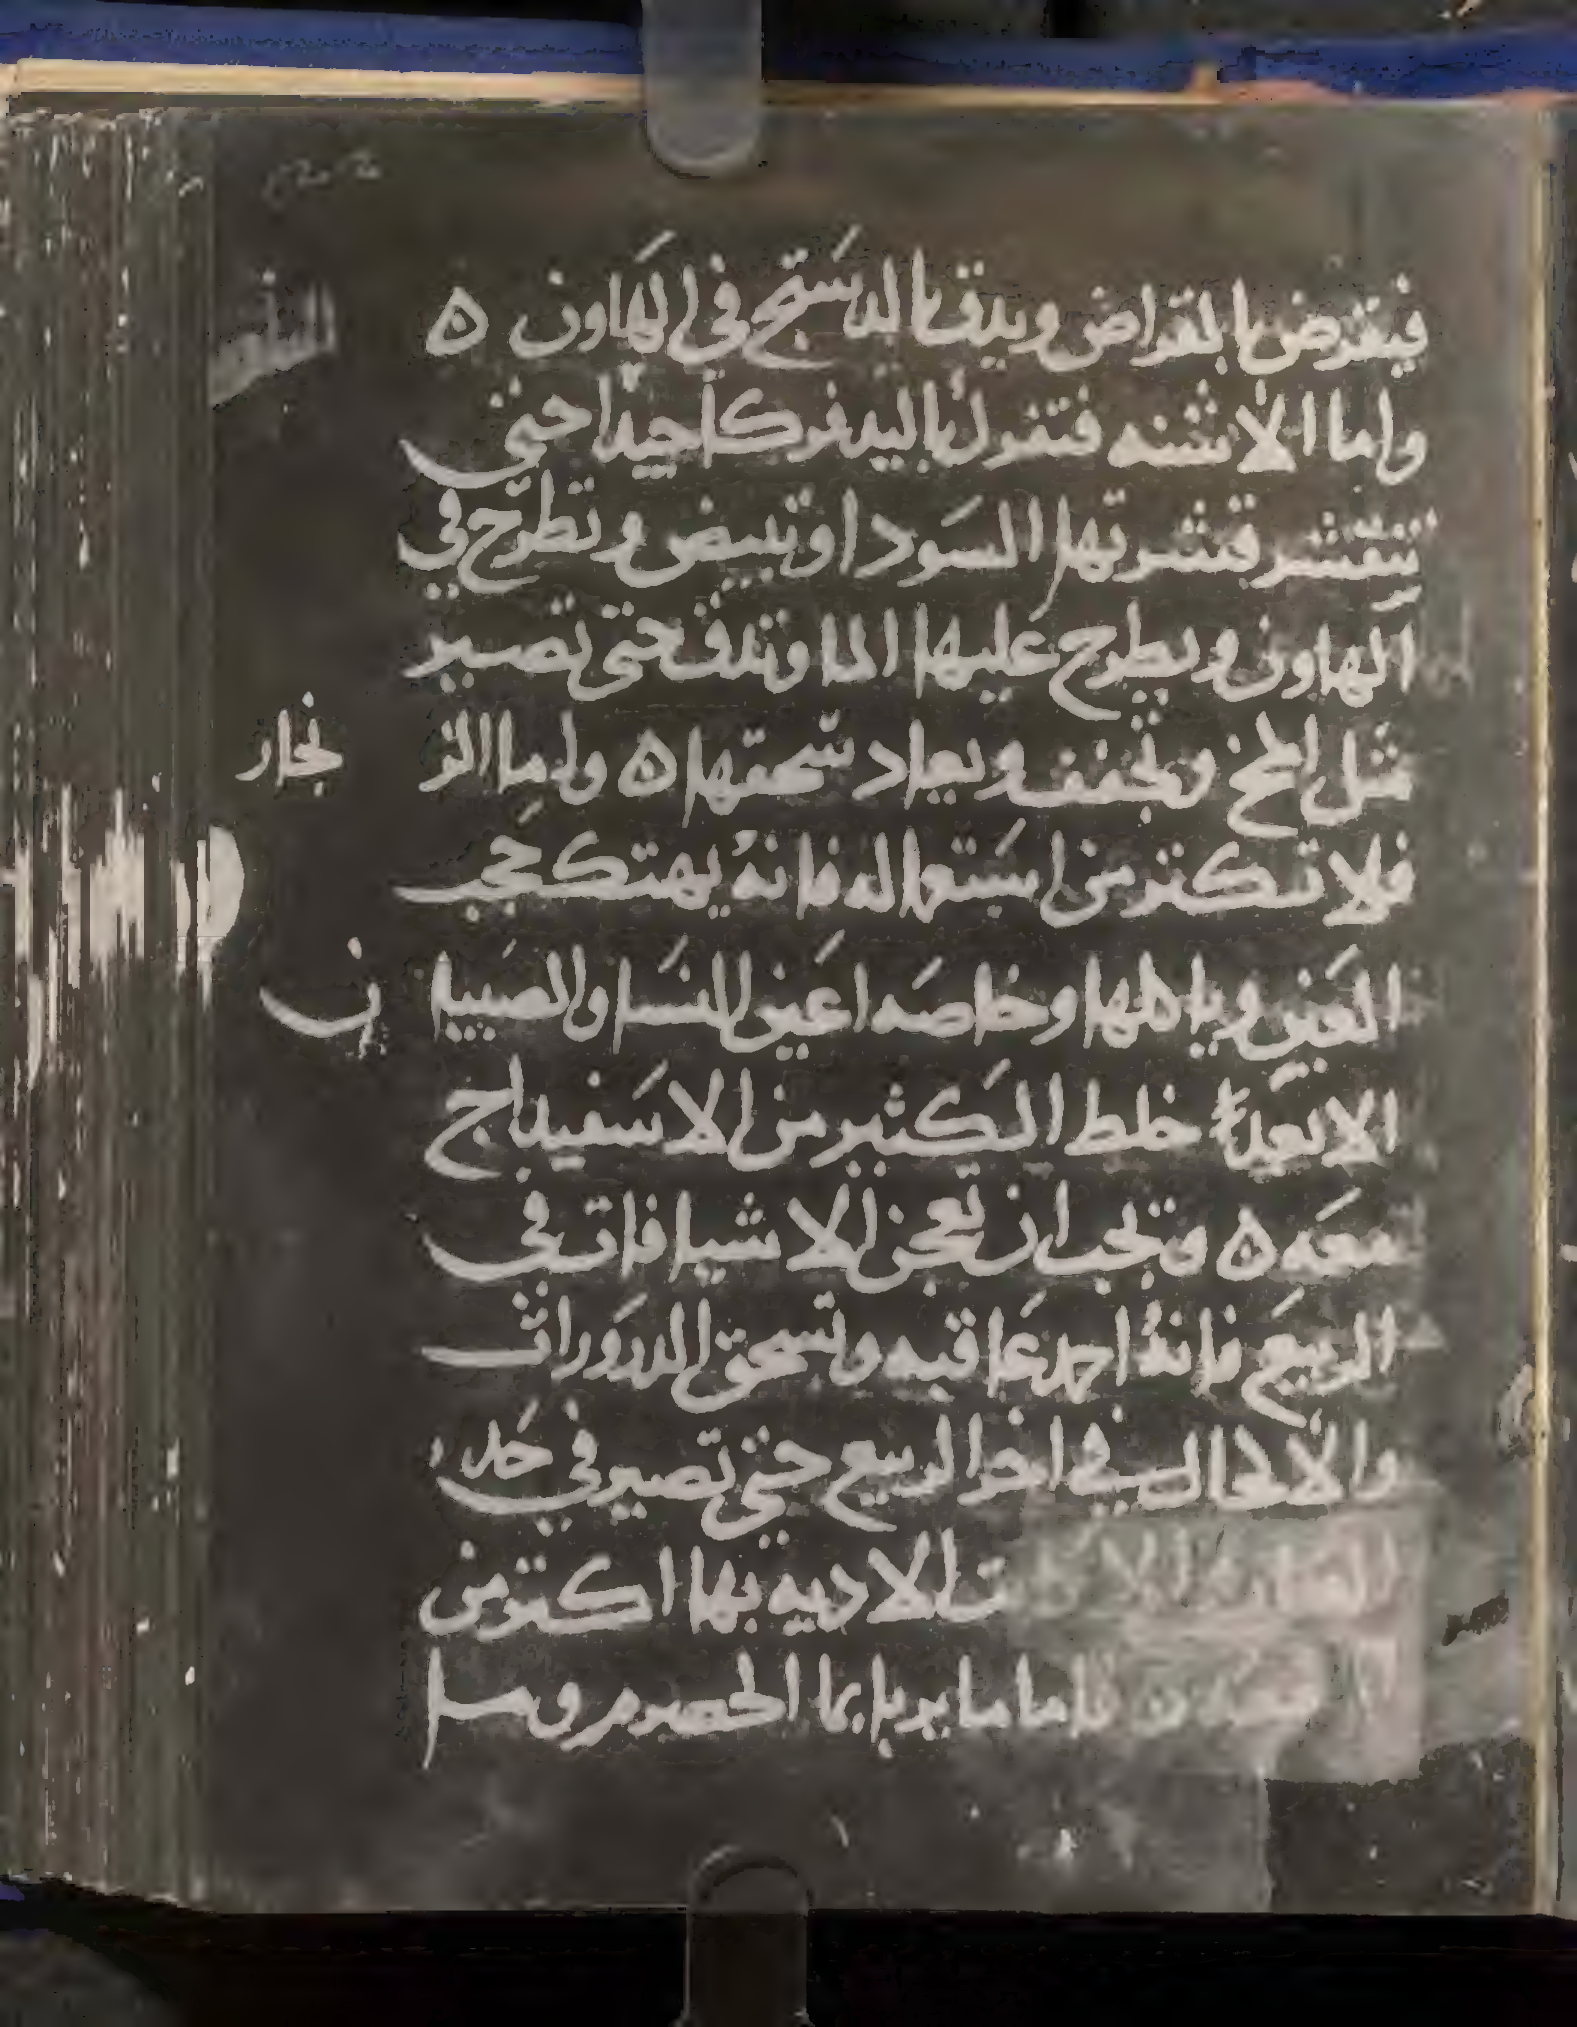 فيقرض بالمقراض ويدق بالدستج في الهاون ه
واما الاشنه فتفرك باليد فركا جيدا حتى
تتقشر قشرتها السودا وتبيض وتطرح في
الهاون ويطرح عليها الما وتدق حتى تصير
مثل المخ وتجفف ويعاد سحقها ه واما الز
نجار
فلا تكثر من استعماله فانه يهتك حجب
العين وياكلها وخاصه اعين النسا والصبيا
ن
الا بعد خلط الكثير من الاسفيداج
معه ه وتجب ان تعجن الاشيافات في
الربيع فانه احمد عاقبه وتسحق الدرورات
والاكحال في اخر الربيع حتى تصير في حد
الادويه بها اكثر من
فاما ما يربا بما الحصرم و